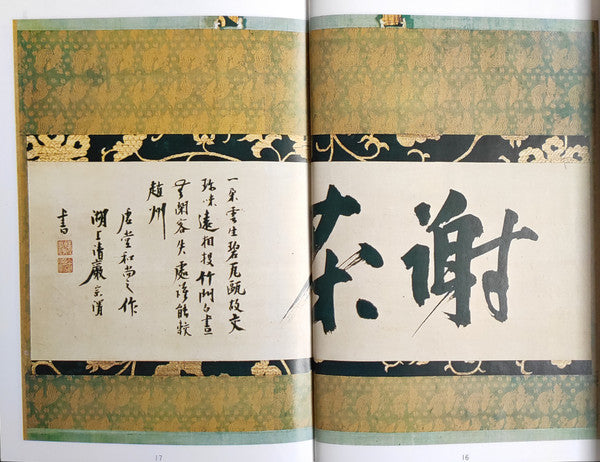 謝茶
一朵雲生碧瓦甌故交
珍味遠相投竹門白晝
無閑客失處誰能校
趙州
虚堂和尚之作
湖上清巌宗渭
書
17
16